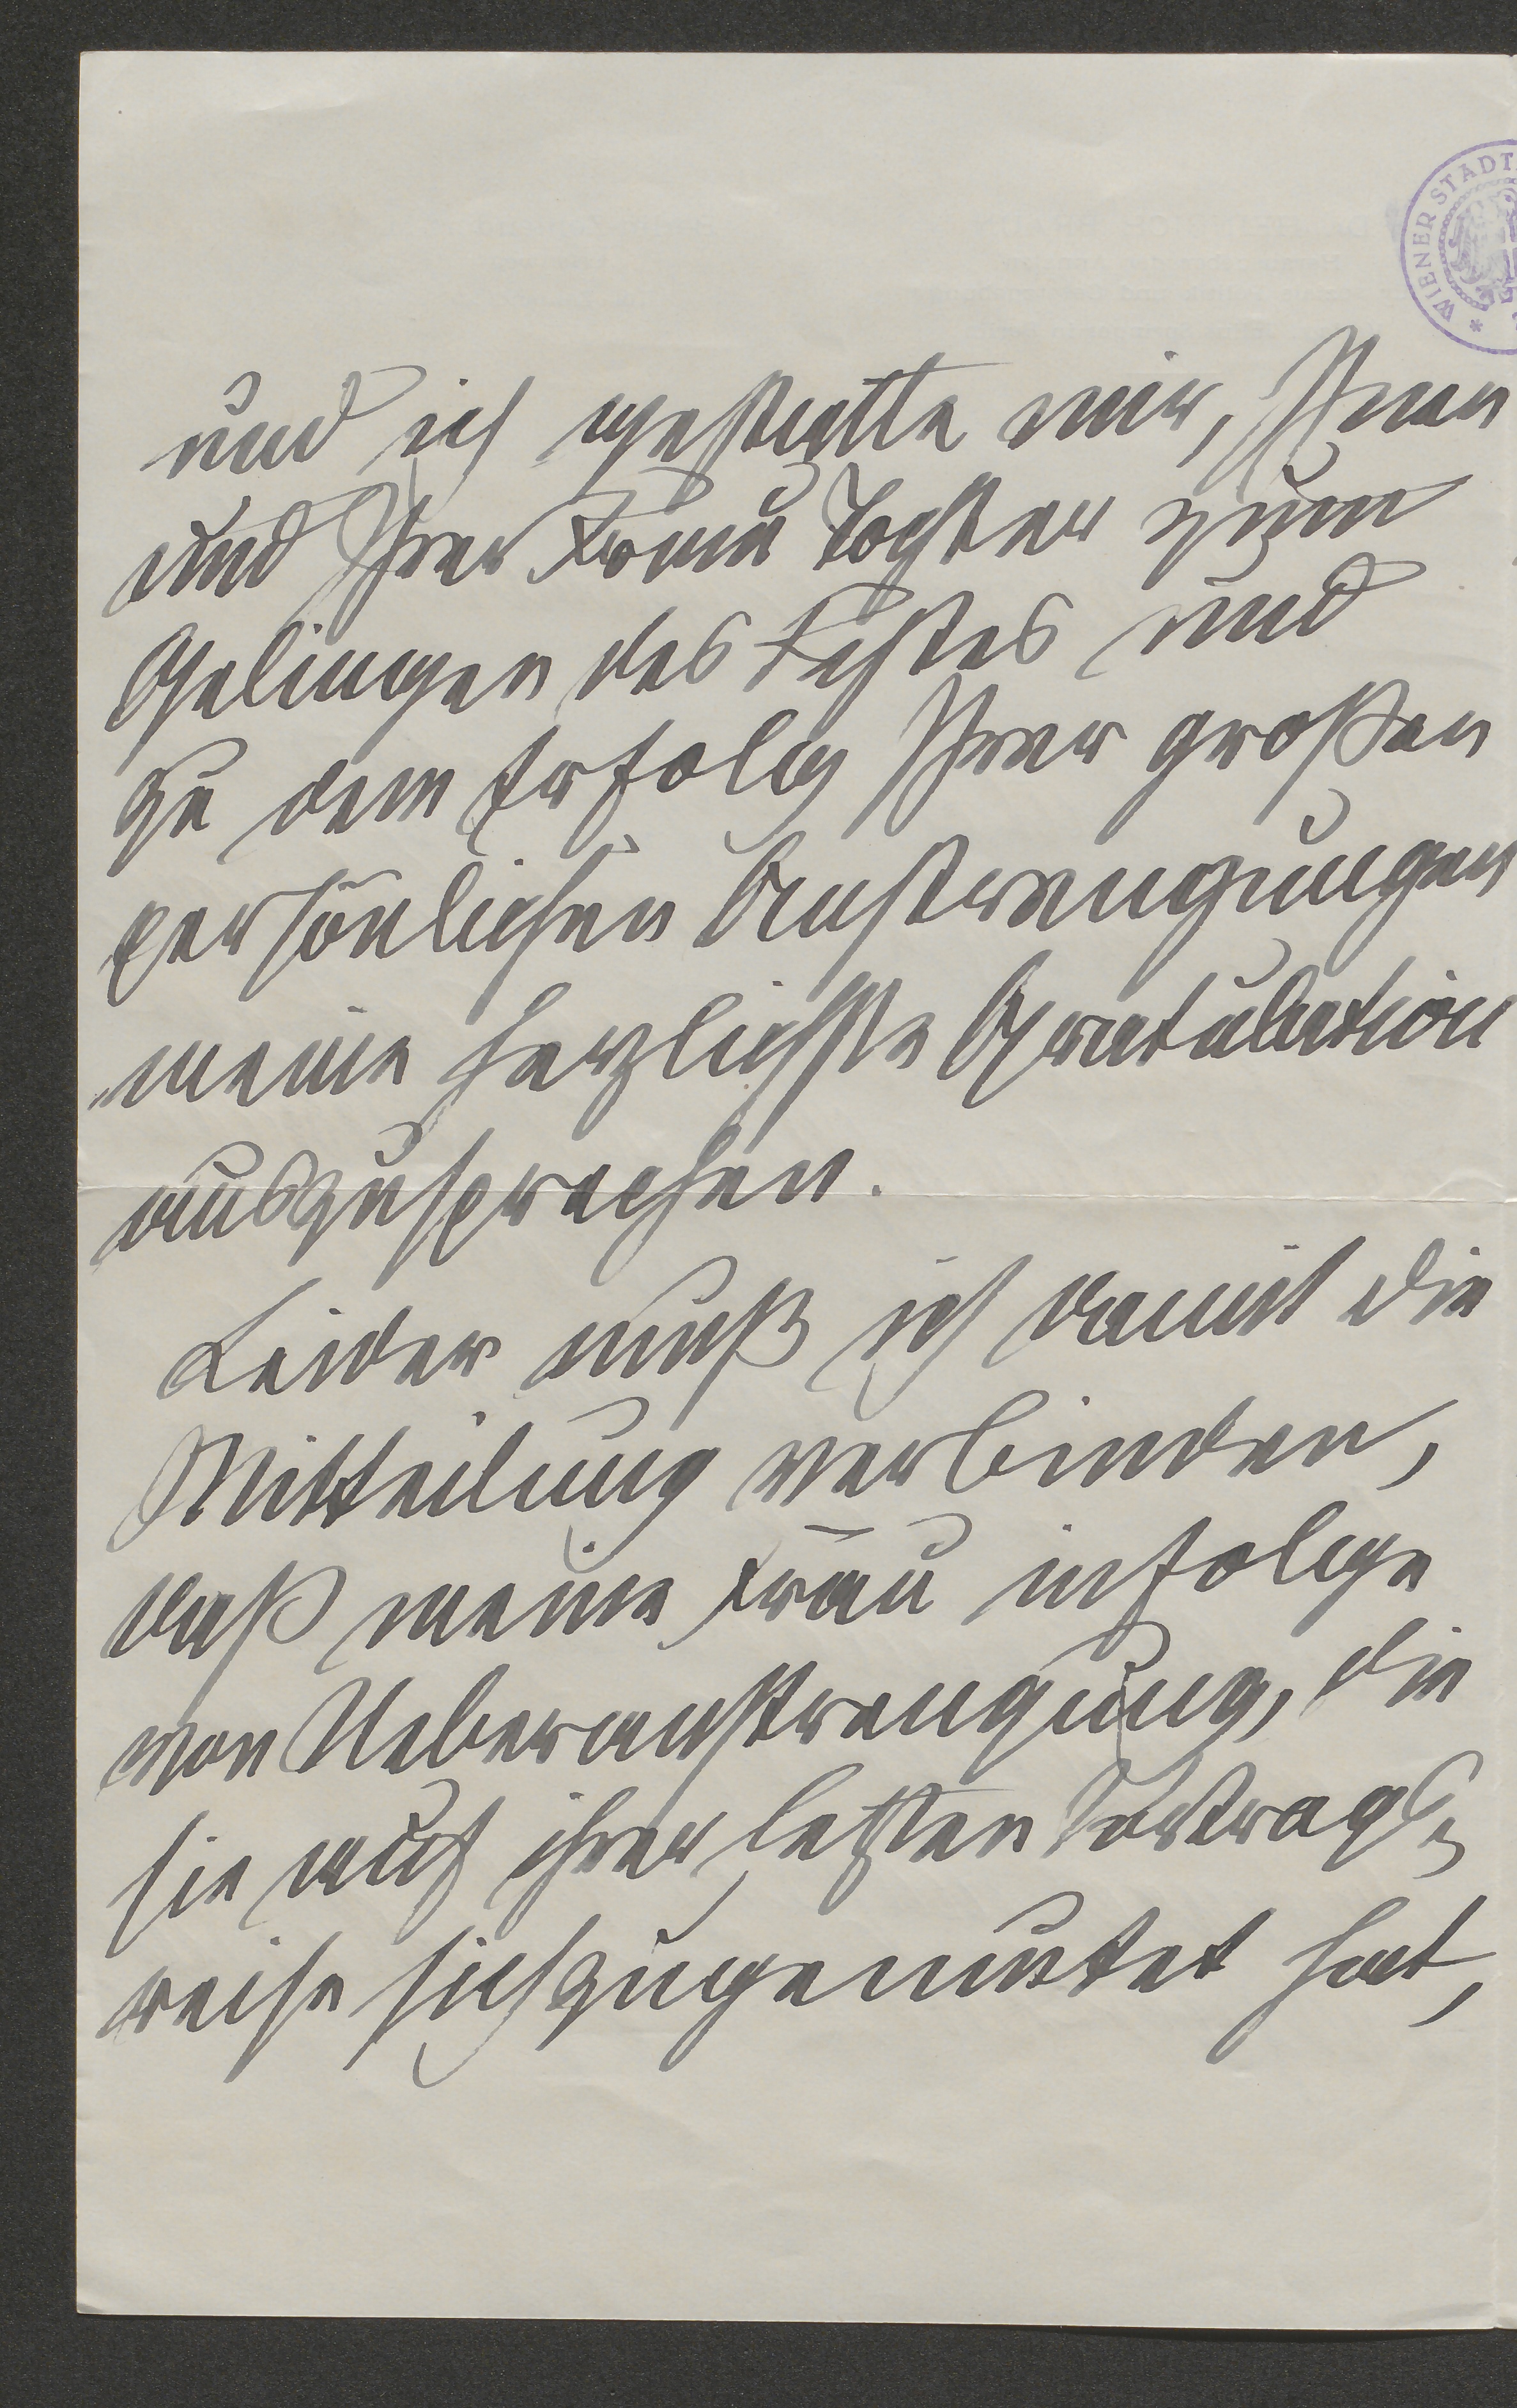 WIENER STADT
und ich gestatte mir, Ihnen
und Ihrer Frau Tochter zum
Gelingen des Festes und
zu dem Erfolg Ihrer großen
persönlichen Anstrengungen
meine herzlichste Gratulation
auszusprechen.
Leider muß ich damit die
Mitteilung verbinden,
daß meine Frau infolge
von Ueberanstrengung, die
sie auf ihrer letzten Vortrags-
reise sich zugemutet hat,